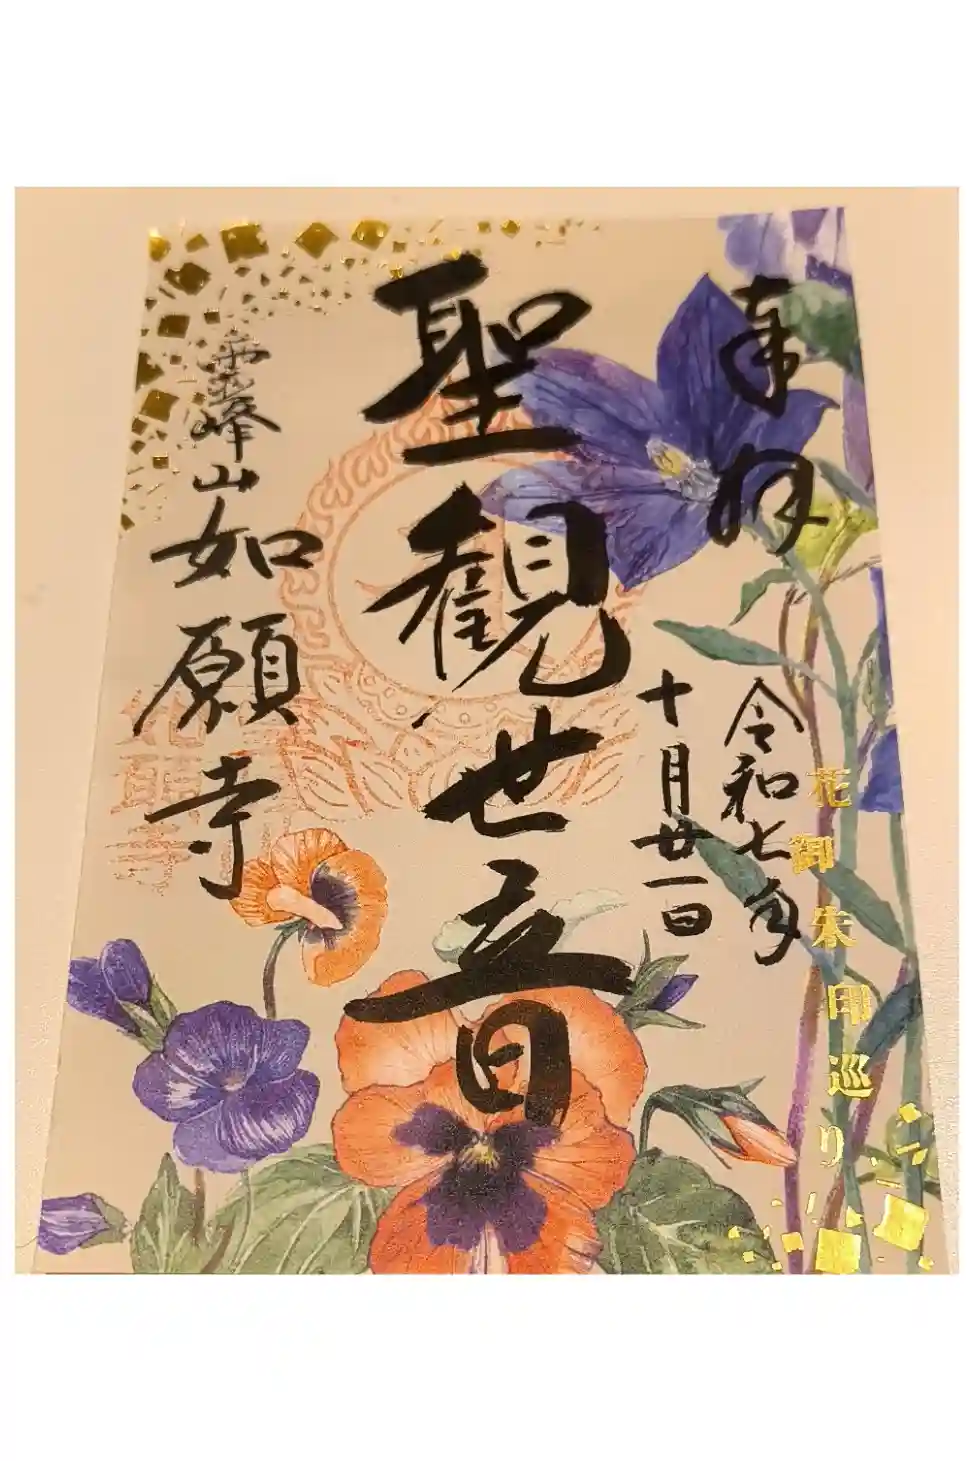 奉拝
令和七年
十月廿一日
聖観世音
霊峰山如願寺
花御朱印巡り